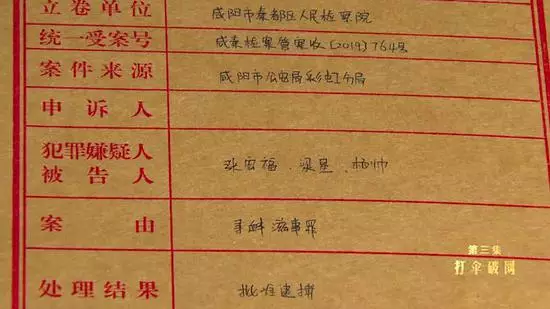 立卷单位 咸阳市秦都区人民检察院
统一受案号 咸秦检案管案收[2019]764号
案件来源 咸阳市公安局彩虹分局
申诉人
犯罪嫌疑人
被告人
张宏福、梁昱、杨帅
案由 寻衅滋事罪
第三集
打伞破网
处理结果 批准逮捕